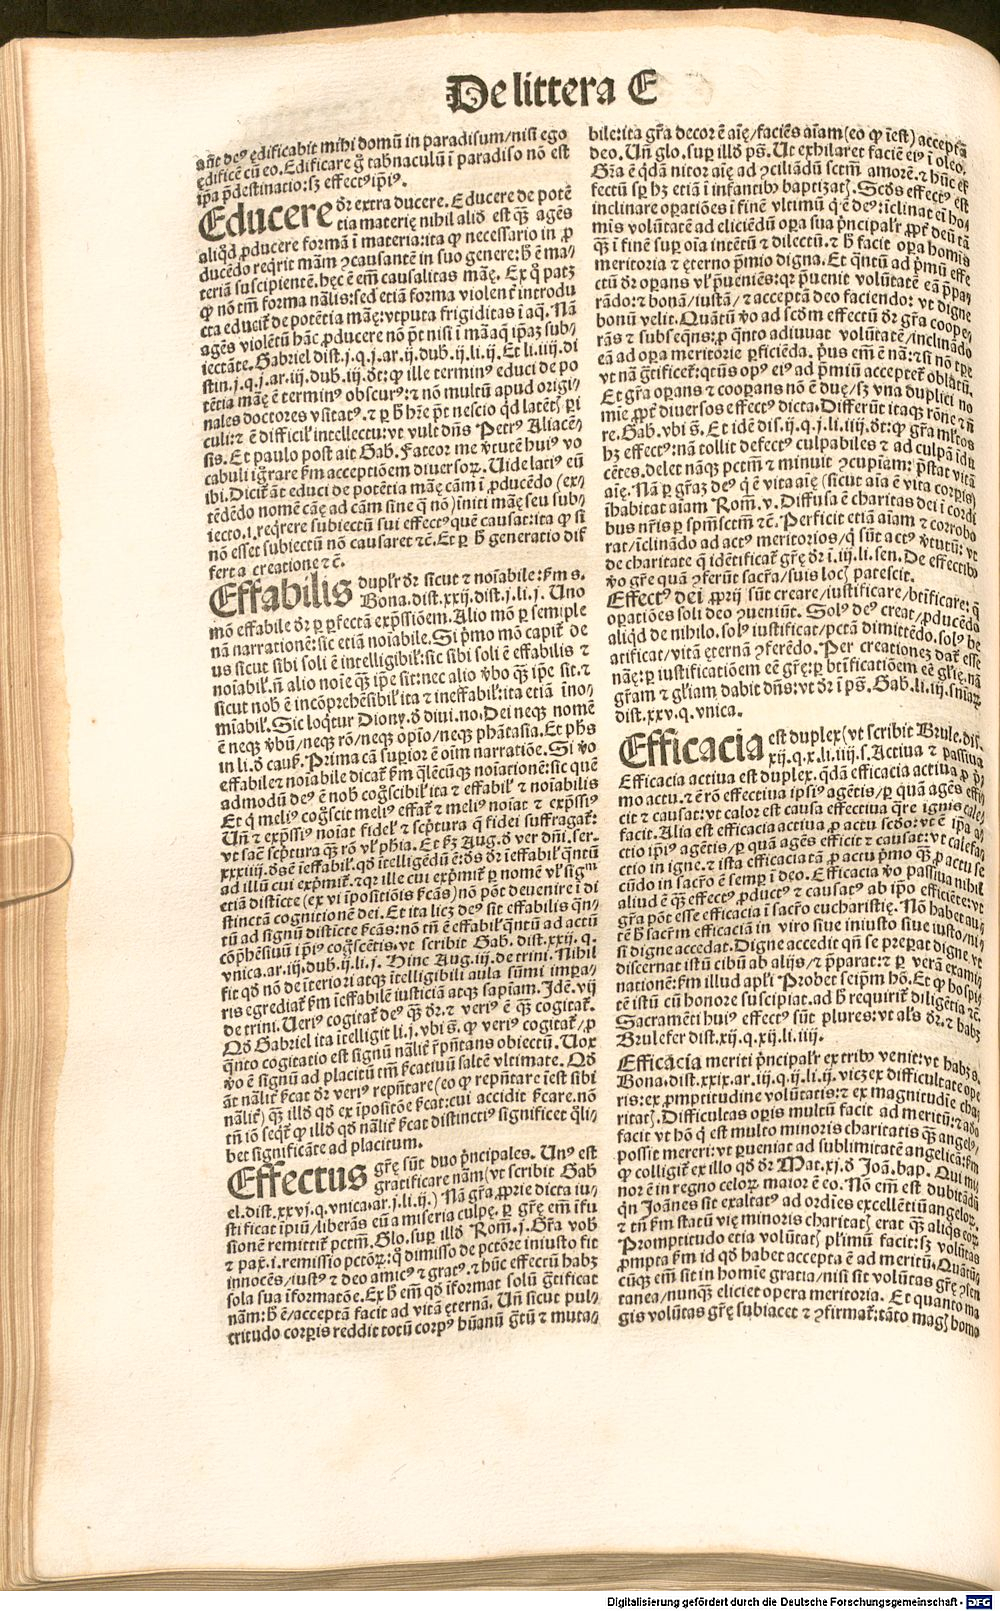 De littera E
aūt deꝰ ędificabit mihi domū in paradisum/nisi ego
ędificē cū eo. Edificare g̃ tabnaculū ī paradiso nō est
ip̄a p̄destinatio: sꝫ effectꝰ ip̄iꝰ.
Educere dr̄ extra ducere. Educere de potē
tia materię nihil aliđ est qꝫ agēs
aliqđ ꝓducere formā ī materia: ita ꝙ necessario in ꝓ
ducēdo reqrit mām ꝯcausantē in suo genere: ħ ē ma-
teriā suscipientē. hęc ē em̄ causalitas maę. Ex q̊ patꝫ
ꝙ nō tm̄ forma nālis: sed etiā forma violent̄ introdu
cta educit̄ de potētia maę: vtputa frigiditas ī aq̄. Nā
agēs violētū hāc ꝓducere nō p̄t nisi ī māaq̄ ip̄aꝫ sub-
iectāte. Gabriel dist. j. q. j. ar. ij. dub. ij. li. ij. Et li. iiij. di
stin. j. q. j. ar. iij. dub. iij. dt̄: ꝙ ille terminꝰ educi de po
tētia maę ē terminꝰ obscurꝰ: ⁊ nō multū apud origi-
nales doctores vsitatꝰ. ⁊ ꝑ ħ hn̄e p̄t nescio qđ latētꝫ ꝑi
culi: ⁊ ē difficił intellectu: vt vult dn̄s Petrꝰ Aliacē-
sis. Et paulo post ait Gab. Fateor me v̄tutē huiꝰ vo
cabuli ig̃rare ẜm acceptiōem diuersoꝝ. Uide latiꝰ eū
ibi. Dicit̄ āt educi de potētia maę cām ī ꝓducēdo (ex-
tēdēdo nomē caę ad cām sine q̄ nō) īniti maę seu sub-
iecto. i. reqrere subiectū sui effectꝰ quē causat: ita ꝙ si
nō esset subiectū nō causaret ⁊č. Et ꝑ ħ generatio dif
fert a creatione ⁊č.
Effabilis duplr̄ dr̄ sicut ⁊ noīabile: ẜm s.
Bona. dist. xxij. dist. j. li. j. Uno
mō effabile dr̄ ꝑ ꝑfectā exp̄ssiōem. Alio mō ꝑ semiple
nā narrationē: sic etiā noīabile. Si p̄mo mō capit̄ de
us sicut sibi soli ē intelligibił: sic sibi soli ē effabilis ⁊
noīabił. n̄ alio noīe qꝫ ip̄e sit: nec alio v̄bo qꝫ ip̄e sit. ⁊
sicut nob̄ ē incōprehēsibił ita ⁊ ineffabił: ita etiā īno-
miabił. Sic loqtur Diony. đ diui. no. Dei neqꝫ nomē
ē neqꝫ v̄bū/neqꝫ rō/neqꝫ opīo/neqꝫ phātasia. Et ph̄s
in li. đ cauẜ. Prima cā supior ē oīm narratiōe. Si v̄o
effabile ⁊ noīabile dicat̄ ẜm q̄lēcūqꝫ noīationē: sic quē
admodū deꝰ ē nob̄ cog̃scibił ita ⁊ effabił ⁊ noīabilis
Et q̊ meliꝰ cog̃scit meliꝰ effat̄ ⁊ meliꝰ noīat ⁊ exp̄ssiꝰ
Un̄ ⁊ exp̄ssiꝰ noīat fidel̄ ⁊ sc̄ptura q̊ fidei suffragat̄:
vt saē sc̄ptura qꝫ rō vł ph̄ia. Et ꝫ Aug. đ ver dn̄i. ser.
xxxiiij. đꝰ ē īeffabił. qđ ītelligēdū ē: đꝰ dr̄ īeffabił qn̄tū
ad illū cui exp̄mit̄. ⁊ qr ille cui exp̄mit̄ ꝑ nomē vł signꝫ
etiā disticte (ex vi īpositiōis ẜcās) nō pōt deuenire ī di
stinctā cognitionē dei. Et ita licꝫ deꝰ sit effabilis qn̄-
tū ad signū disticte ẜcās: nō tn̄ ē effabił qn̄tū ad actū
cōp̄hēsiuū ip̄iꝰ cog̃scētis. vt scribit Gab. dist. xxij. q.
vnica. ar. iij. dub. ij. li. j. Hinc Aug. iij. de trini. Nihil
fit qđ nō de īteriori atqꝫ ītelligibili aula sūmi impa-
ris egrediat̄ ẜm īeffabilē iusticiā atqꝫ sapīam. Idē. vij
de trini. Ueriꝰ cogitat̄ deꝰ qꝫ dr̄. ⁊ veriꝰ ē qꝫ cogitat̄.
Qđ Gabriel ita ītelligit li. j. vbi s̄. ꝙ veriꝰ cogitat̄/ꝓ
q̄nto cogitatio est signū nālit̄ r̄p̄ntans obiectū. Uox
v̄o ē signū ad placitū tm̄ ẜcatiuū saltē vltimate. Qđ
āt nālit̄ ẜcat dr̄ veriꝰ rep̄ntare (eo ꝙ rep̄ntare īest sibi
nālit̄) qꝫ illđ qđ ex īpositōe ẜcat: cui accidit ẜcare. nō
tn̄ iō seqt̄ ꝙ illđ qđ nālit̄ ẜcat distinctiꝰ significet q̄li-
bet significāte ad placitum.
Effectus g̃rę sūt duo p̄ncipales. Unꝰ est
gratificare nām (vt scribit Gab
el. dist. xxvj. q. vnica. ar. j. li. ij.) Nā g̃ra ꝓprie dicta iu-
stificat ip̄iū/liberās eū a miseria culpę. ꝑ g̃rę em̄ īfu
sionē remittit̄ pctm̄. Glo. sup̄ illđ Rom̄. j. Gr̄a vob̄
⁊ pax. i. remissio pctōꝝ: q̊ dimisso de pctōre iniusto fit
innocēs/iustꝰ ⁊ deo amicꝰ ⁊ gratꝰ. ⁊ hūc effectū habꝫ
sola sua īformatōe. Ex ħ em̄ qđ īformat solū g̃tificat
nām: ħ ē/acceptā facit ad vitā ęternā. Un̄ sicut pul-
critudo corpis reddit totū corpꝰ būanū g̃tū ⁊ muta-
bile: ita g̃ra decor ē aīę/faciēs aīam (eo ꝙ īest) acceptā
deo. Un̄ glo. sup̄ illđ ps̄. Ut exhilaret faciē eiꝰ ī oleo.
Gr̄a ē q̄dā nitor aię ad ꝯciliādū sctm̄ amorē. ⁊ hūc ef
fectum sp̄ hꝫ etiā ī infantibꝰ baptizatꝫ. Scđs effectꝰ est
inclinare opatiōes ī finē vltimū q̊ ē deꝰ: īclinat em̄ ho
mis volūtatē ad eliciēdū opa sua p̄ncipalr̄ ꝓpt̄ deū tā
qꝫ ī finē sup̄ oīa intētū ⁊ dilectū. ⁊ ħ facit opa homīs
meritoria ⁊ ęterno p̄mio digna. Et qn̄tū ad p̄mū effe
ctū dr̄ opans vł p̄ueniēs: qr p̄uenit volūtatē eā p̄pa/
rādo: ⁊ bonā/iustā/⁊ acceptā deo faciendo: vt digne
bonū velit. Quātū v̄o ad scđm effectū dr̄ g̃ra coope/
rās ⁊ subseqn̄s: ꝓ q̄nto adiuuat volūtatē/inclinādo
eā ad opa meritorie ꝑficiēda. p̄us em̄ ē nā: ⁊ si nō tpe
vt nā g̃tificet̄: qtūs opꝰ eiꝰ ad p̄miū acceptet̄ oblatū.
Et g̃ra opans ⁊ coopans nō ē duę/sꝫ vna duplici no
mie ꝓpt̄ diuersos effectꝰ dicta. Differūt itaqꝫ rōne ⁊ n̄
re. Gab. vbi s̄. Et idē dis. ij. q. j. li. iiij. dt̄: ꝙ g̃ra mltos
hꝫ effectꝰ: nā tollit defectꝰ culpabiles ⁊ ad culpā idu
cētes. delet nāqꝫ pctm̄ ⁊ minuit ꝯcupīam: p̄stat vitā
aię. Nā ꝑ g̃raꝫ deꝰ q̊ ē vita aię (sicut aīa ē vita corpis)
īhabitat aīam Rom̄. v. Diffusa ē charitas dei ī cordi
bus nr̄is ꝑ spm̄sctm̄ ⁊č. Perficit etiā aīam ⁊ corrobo
rat/īclināndo ad actꝰ meritorios/q̊ sūt actꝰ v̄tutū: vt
de charitate q̊ idētificat̄ g̃rę dr̄ ī. iij. li. sen. De effectibꝰ
v̄o g̃re quā ꝯferūt sacr̄a/suis locꝫ patescit.
Effectꝰ dei ꝓprij sūt creare/iustificare/btīficare: q̊
opatiōes soli deo ꝯueniūt. Solꝰ deꝰ creat/ꝓducēdo
aliqđ de nihilo. solꝰ iustificat/pctā dimittēdo. solꝰ be
atificat/vitā ęternā ꝯferēdo. Per creationeꝫ dat̄ esse
naę: ꝑ iustificatiōem eē g̃rę: ꝑ btīficatiōem eē gl̄ię. nā
g̃ram ⁊ gl̄iam dabit dn̄s: vt dr̄ ī ps̄. Gab. li. iij. sniaꝝ
dist. xxv. q. vnica.
Efficacia est duplex (vt scribit Brule. dis.
xij. q. x. li. iiij. s. Actiua ⁊ passiua
Efficacia actiua est duplex. q̄dā efficacia actiua ꝓ p̄ri
mo actu. ⁊ ē rō effectiua ipsiꝰ agētis/ꝑ quā agēs effi
cit ⁊ causat: vt calor est causa effectiua q̄re ignis calef
facit. Alia est efficacia actiua ꝓ actu scđo: vt ē ip̄a a
ctio ip̄iꝰ agētis/ꝑ quā agēs efficit ⁊ causat: vt calefa
ctio in igne. ⁊ ista efficacia tā ꝓ actu p̄mo qꝫ ꝓ actu se
cūdo in sacr̄o ē semꝑ ī deo. Efficacia v̄o passiua nihil
aliud ē qꝫ effectꝰ ꝓductꝰ ⁊ causatꝰ ab ip̄o efficiēte: vt
g̃ra pōt esse efficacia ī sacr̄o eucharistię. Nō habet aut
tē ħ sacr̄m efficaciā in viro siue iniusto siue iusto/ni/
si digne accedat. Digne accedit qn̄ se prepat digne. vt
discernat istū cibū ab alijs/⁊ p̄parat: ⁊ ꝑ verā exami
nationē: ẜm illud apl̄i Probet seip̄m hō. Et ꝙ hospi
tē istū cū honore suscipiat. ad ħ requirit̄ diligētia ⁊č.
Sacramēti huiꝰ effectꝰ sūt plures: vt al̄s dr̄. ⁊ habꝫ
Brulefer dist. xij. q. xij. li. iiij.
Efficacia meriti p̄ncipalr̄ ex tribꝰ venit: vt habꝫ s.
Bona. dist. xxix. ar. iij. q. ij. li. ij. vicꝫ ex difficultate ope
ris: ex ꝓmptitudine volūtatis: ⁊ ex magnitudīe cha
ritatꝫ. Difficultas opis multū facit ad meritū: ⁊ ađo
facit vt hō q̊ est multo minoris charitatis qꝫ angelꝰ/
possit mereri: vt ꝑueniat ad sublimitatē angelicā: ẜm
ꝙ colligit̄ ex illo qđ dr̄ Mat. xj. đ Joā. bap. Qui mi
nor ē in regno celoꝝ maior ē eo. Nō em̄ est dubitādū
qn̄ Joānes sit exaltatꝰ ad ordīes excellētiū angeloꝝ.
⁊ tn̄ ẜm statū vię minoris charitatꝫ erat qꝫ aliqs eoꝝ
Promptitudo etia volūtatꝫ pl̄imū facit: sꝫ volūtas
ꝓmpta ẜm id qđ habet accepta ē ad meritū. Quātū
cūqꝫ em̄ sit in homīe gratia/nisi sit volūtas g̃rę ꝯsen
tanea/nunqꝫ eliciet opera meritoria. Et quanto ma
gis volūtas g̃rę subiacet ⁊ ꝯfirmat̄: tāto magꝫ homo
Digitalisierung gefördert durch die Deutsche Forschungsgemeinschaft - DFG